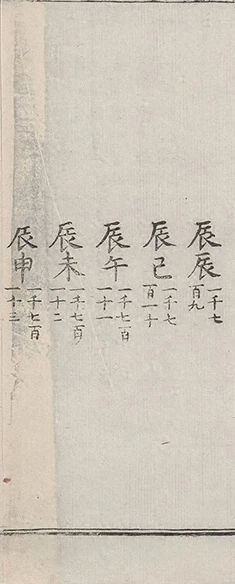 辰辰一千七百九
辰巳一千七百一十
辰午一千七百一十一
辰未一千七百一十二
辰申一千七百一十三